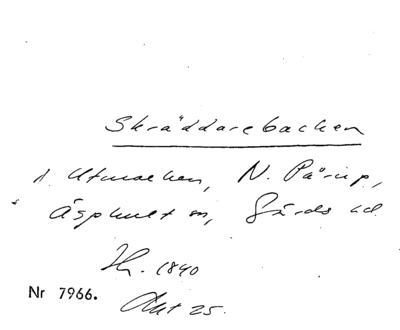 Skräddarebacken
å Utmarken, N. Pårup,
Äsphult sn, Gärds hd.
Lh. 1840
Nr 7966. Akt 25.